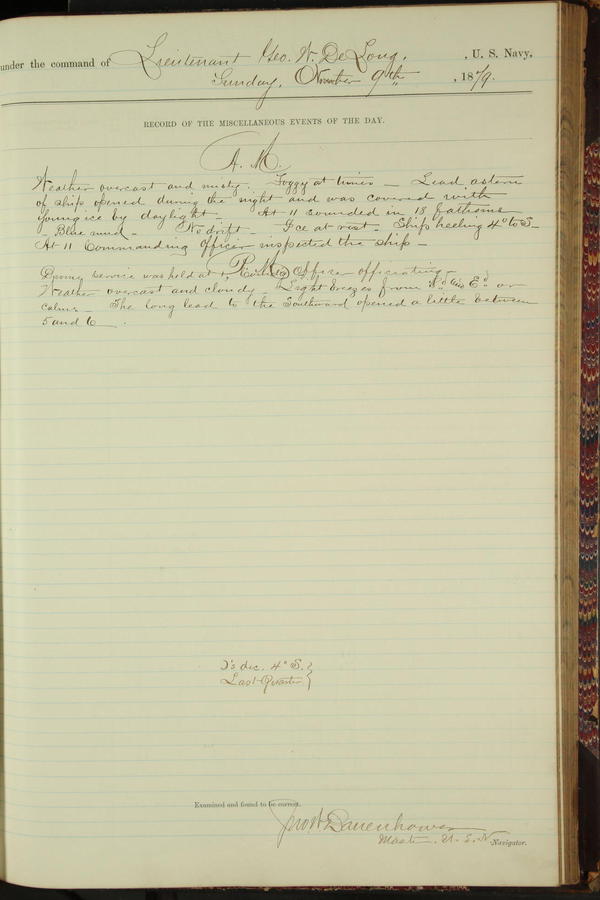 under the command of Lieutenant Geo. W. De Long, , U. S. Navy,
Sunday, November 9th , 1879.
RECORD OF THE MISCELLANEOUS EVENTS OF THE DAY.
A. M.
Weather overcast and misty. Foggy at times — Lead astern
of ship opened during the night and was covered with
young ice by daylight — At 11 sounded in 18 fathoms
— Blue mud — No drift — Ice at rest — Ship heeling 4° to S —
At 11 Commanding Officer inspected the ship —
P. M.
Divine service was held at 1, Officer officiating —
Weather overcast and cloudy — Light breezes from N'd and E'd or
calms — The long lead to the Southward opened a little between
5 and 6 — .
☽'s dec. 4° S. }
Last Quarter }
Examined and found to be correct.
Jno W Danenhower
Master. U. S. N Navigator.